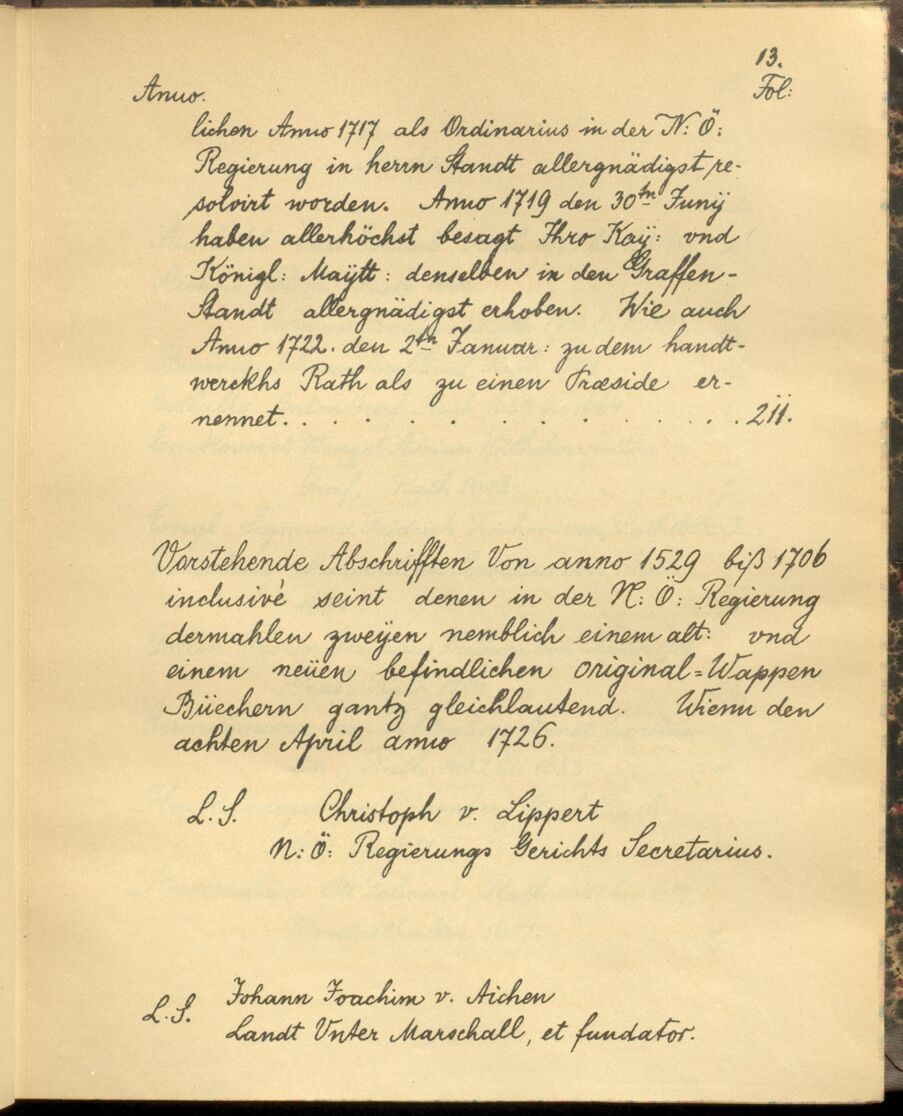 13.
Anno. Fol:
lichen Anno 1717 als Ordinarius in der N: Ö:
Regierung in herrn Standt allergnädigst re-
solvirt worden. Anno 1719 den 30tn Junÿ
haben allerhöchst besagt Ihro Kaÿ: vnd
Königl: Maÿtt: denselben in den Graffen-
Standt allergnädigst erhoben. Wie auch
Anno 1722. den 2tn Januar: zu dem handt-
werckhs Rath als zu einen Præside er-
nennet. . . . . . . . . . . . . . . 211.
Vorstehende Abschrifften Von anno 1529 biß 1706
inclusivè seint denen in der N: Ö: Regierung
dermahlen zweÿen nemblich einem alt: vnd
einem neüen befindlichen original=Wappen
Büechern gantz gleichlautend. Wienn den
achten April anno 1726.
L. S. Christoph v. Lippert
N: Ö: Regierungs Gerichts Secretarius.
L. S. Johann Joachim v. Aichen
Landt Vnter Marschall, et fundator.